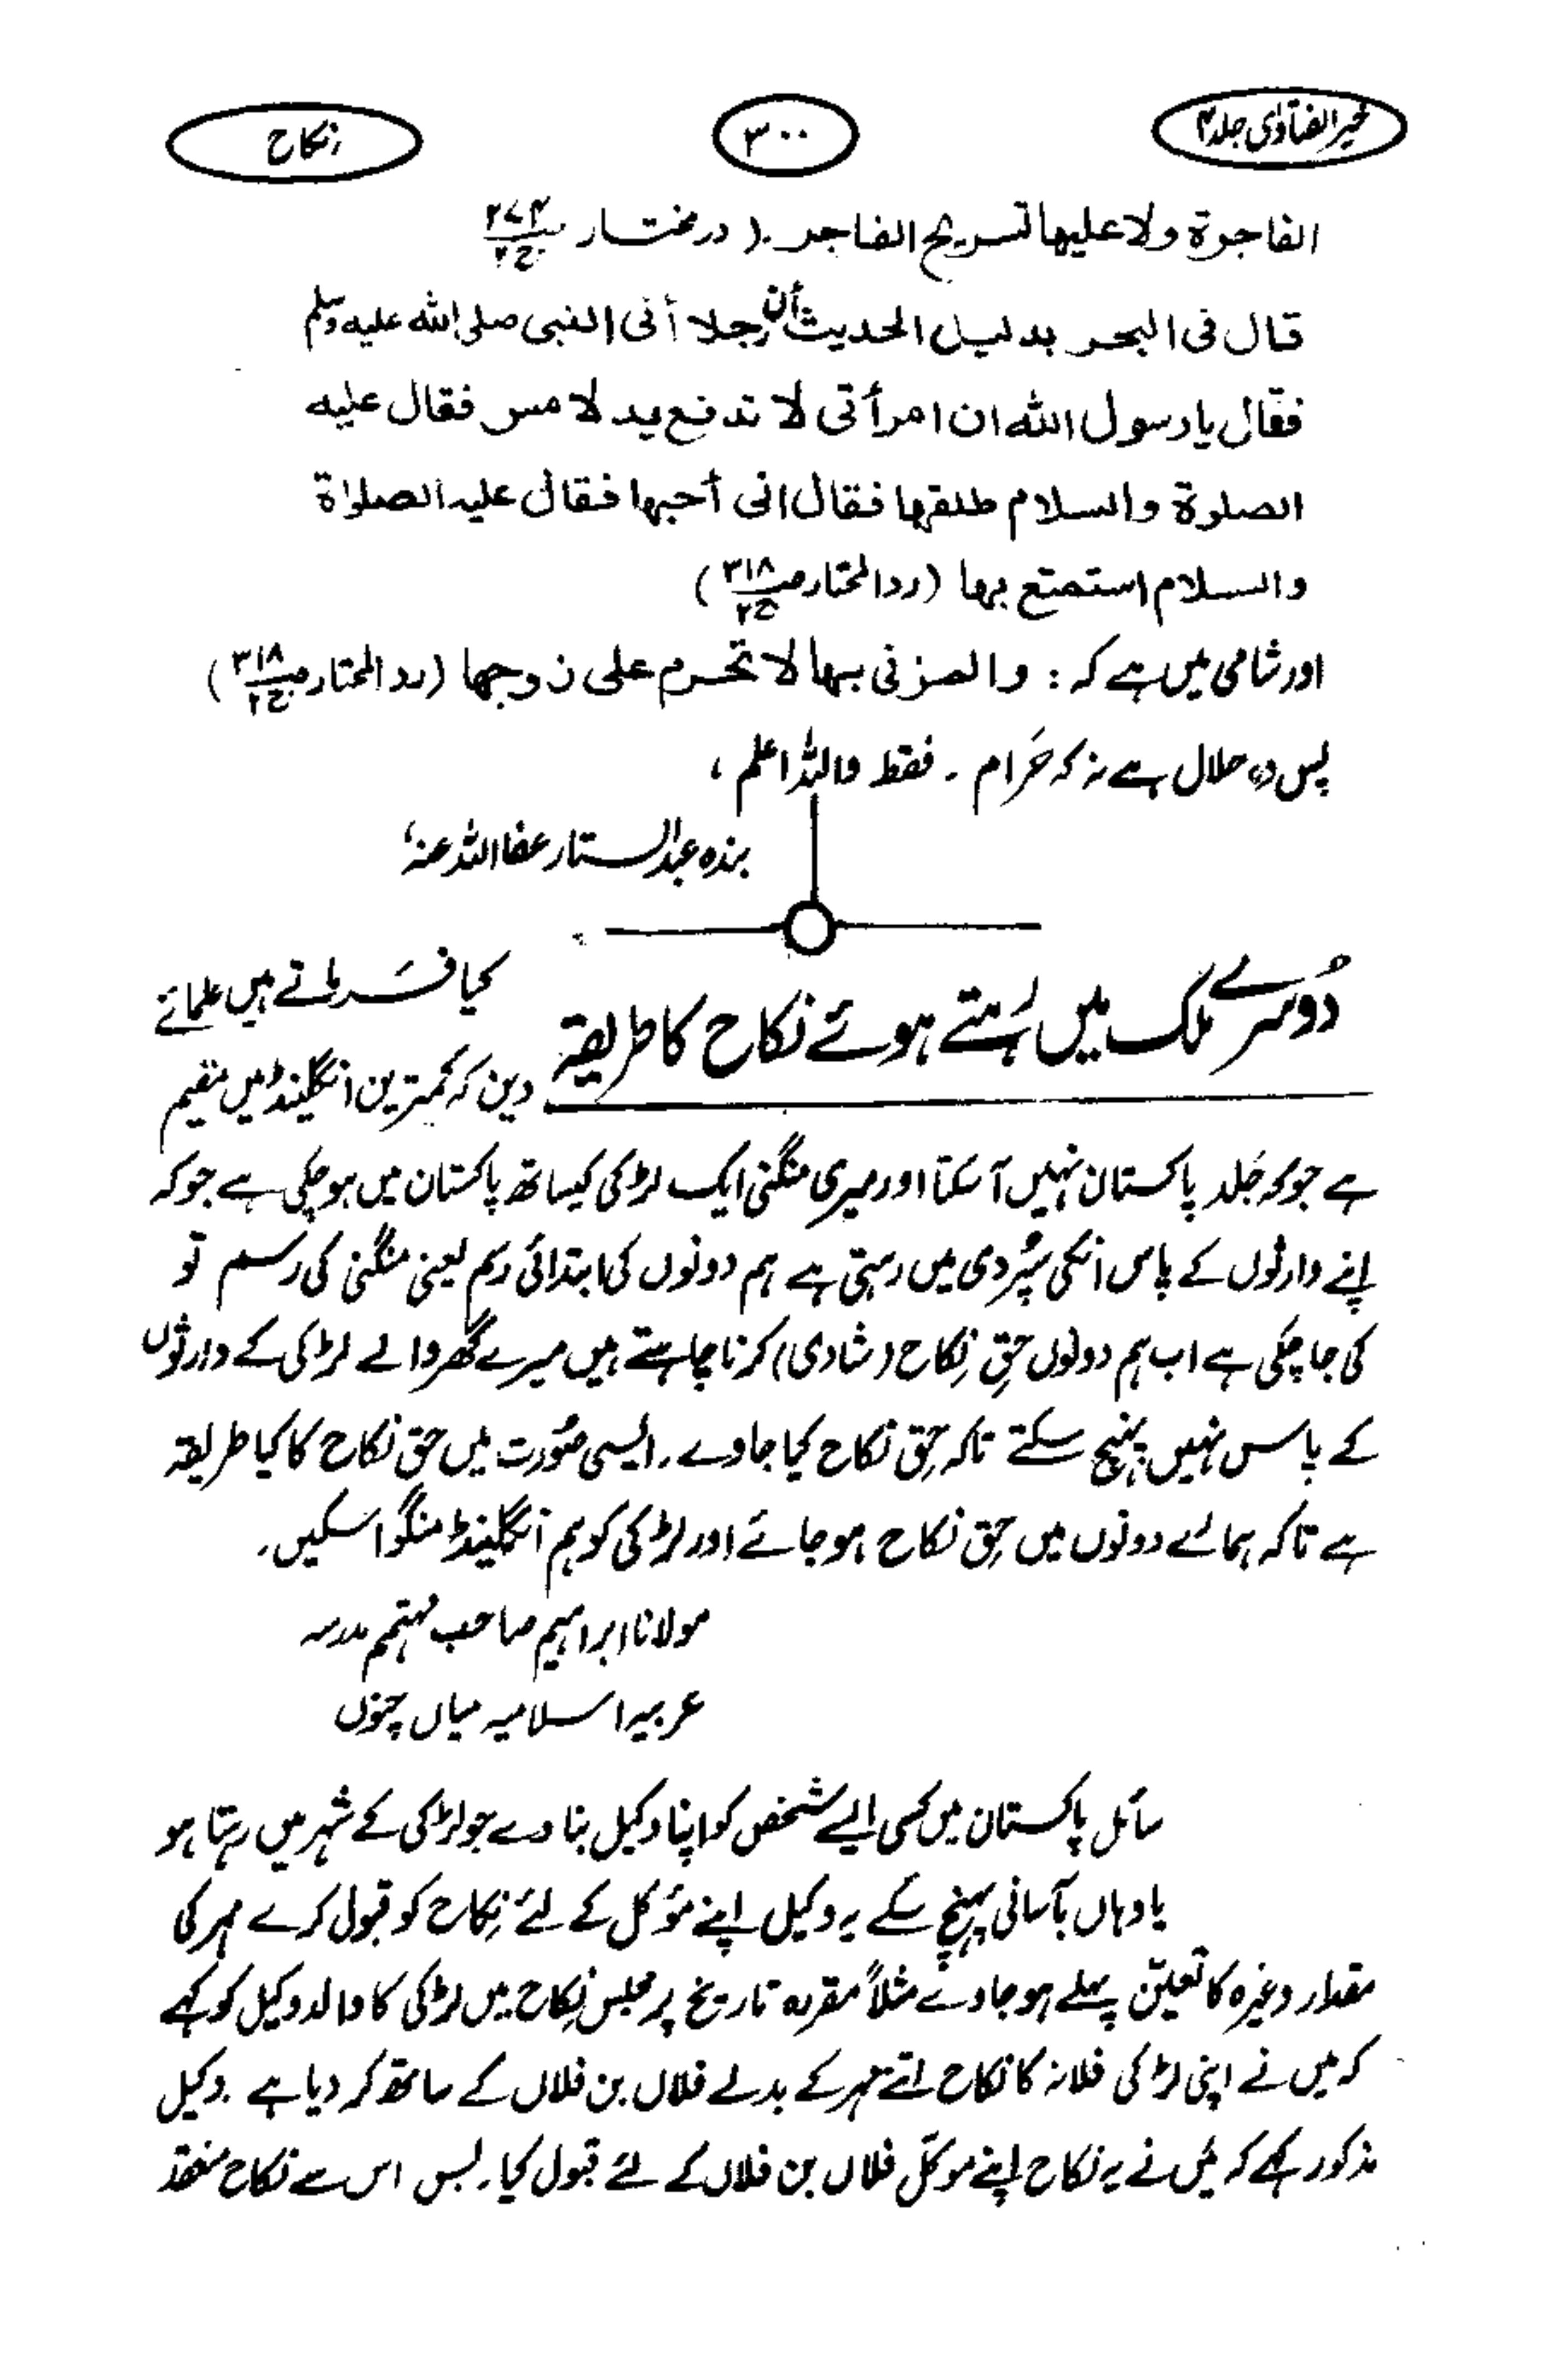 خیر الفتاویٰ جلد ۴
۳۰۰
نکاح
الفاجرة ولا علیها تسریح الفاجر۔ ( درمختار ص۲۷۴ ج۲
قال فی البحر بدلیل الحدیث أن رجلا أتی النبی صلی الله علیه وسلم
فقال یا رسول الله ان امرأتی لا تدفع ید لامس فقال علیه
الصلوة والسلام طلقها فقال انی أحبها فقال علیه الصلوٰة
والسلام استمتع بها (ردالمحتار ص۳۱۸ ج۲)
اور شامی میں ہے کہ : والمزنی بها لا تحرم علی زوجها (ردالمحتار ص۳۱۸ ج۲)
پس وہ حلال ہے نہ کہ حرام ۔ فقط واللہ اعلم ،
بندہ عبدالستار عفا اللہ عنہ،
دوسرے ملک میں رہتے ہوئے نکاح کا طریقہ
کیا فرماتے ہیں علمائے
دین کہ کمترین انگلینڈ میں مقیم
ہے جو کہ جلد پاکستان نہیں آسکتا اور میری منگنی ایک لڑکی کیساتھ پاکستان میں ہو چکی ہے جو کہ
اپنے وارثوں کے پاس انکی سپُردی میں رہتی ہے ہم دونوں کی ابتدائی رسم یعنی منگنی کی رسم تو
کی جا چکی ہے اب ہم دونوں حقِ نِکاح (شادی) کرنا چاہتے ہیں میرے گھر والے لڑکی کے وارثوں
کے پاس نہیں پہنچ سکتے تاکہ حقِ نکاح کیا جاوے۔ ایسی صُورت میں حق نکاح کا کیا طریقہ
ہے تاکہ ہمارے دونوں میں حقِ نکاح ہو جائے اور لڑکی کو ہم انگلینڈ منگوا سکیں۔
مولانا ابراہیم صاحب مہتمم مدرسہ
عربیہ اسلامیہ میاں چنوں
سائل پاکستان میں کسی ایسے شخص کو اپنا وکیل بنا دے جو لڑکی کے شہر میں رہتا ہو
یا وہاں بآسانی پہنچ سکے یہ وکیل اپنے مؤکل کے لئے نِکاح کو قبول کرے مہر کی
مقدار وغیرہ کا تعیّن پہلے ہو جاوے مثلاً مقررہ تاریخ پر مجلسِ نِکاح میں لڑکی کا والد وکیل کو کہے
کہ میں نے اپنی لڑکی فلانہ کا نکاح اتنے مہر کے بدلے فلاں بن فلاں کے ساتھ کر دیا ہے ۔ وکیل
مذکور کہے کہ مَیں نے یہ نکاح اپنے موکّل فلاں بن فلاں کے لئے قبول کیا۔ بس اس سے نکاح منعقد